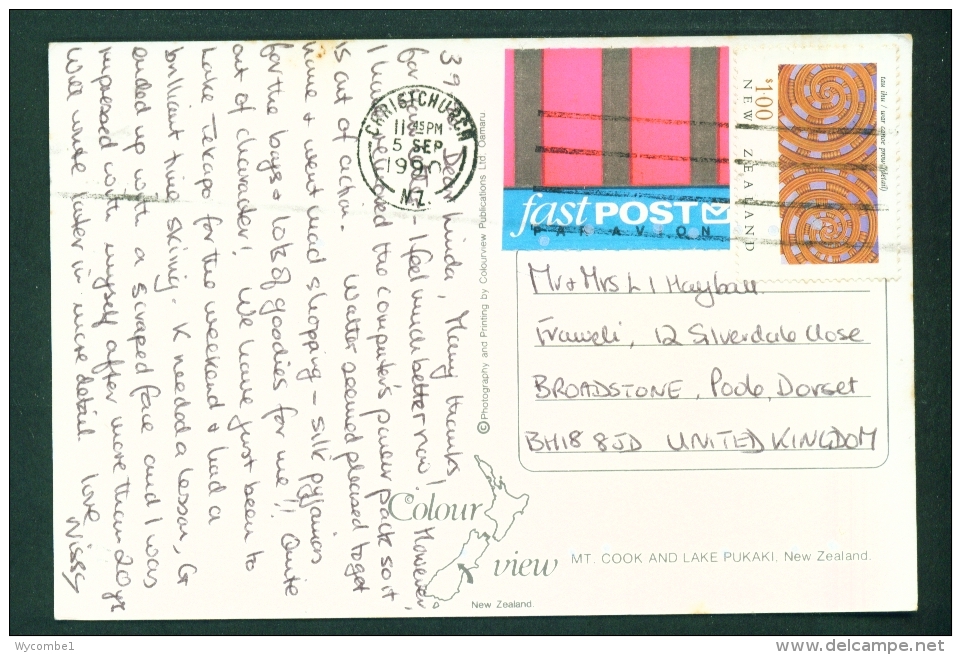 39 Dear Linda, Many thanks
for - I feel much better now! However,
I have the computer's power pack so it
is out of action. Walter seemed pleased to get
home & went mad shopping - silk pyjamas
for the boys & lots of goodies for me!! Quite
out of character! We have just been to
Lake Tekapo for the weekend & had a
brilliant time skiing. K needed a lesson, G
ended up with a scraped face and I was
impressed with myself after more than 20 yrs
will write later in more detail. Love
CHRISTCHURCH
11 45 PM
5 SEP
N.Z.
© Photography and Printing by Colourview Publications Ltd, Oamaru
fast POST
PAR AVION
$1.00
NEW ZEALAND
tau ihu / war canoe prow (detail)
Mr & Mrs L I Hayball
12 Silverdale Close
BROADSTONE, Poole, Dorset
BH18 8JD UNITED KINGDOM
Colour
view
MT. COOK AND LAKE PUKAKI, New Zealand.
New Zealand
Wycombe1
www.delcampe.net